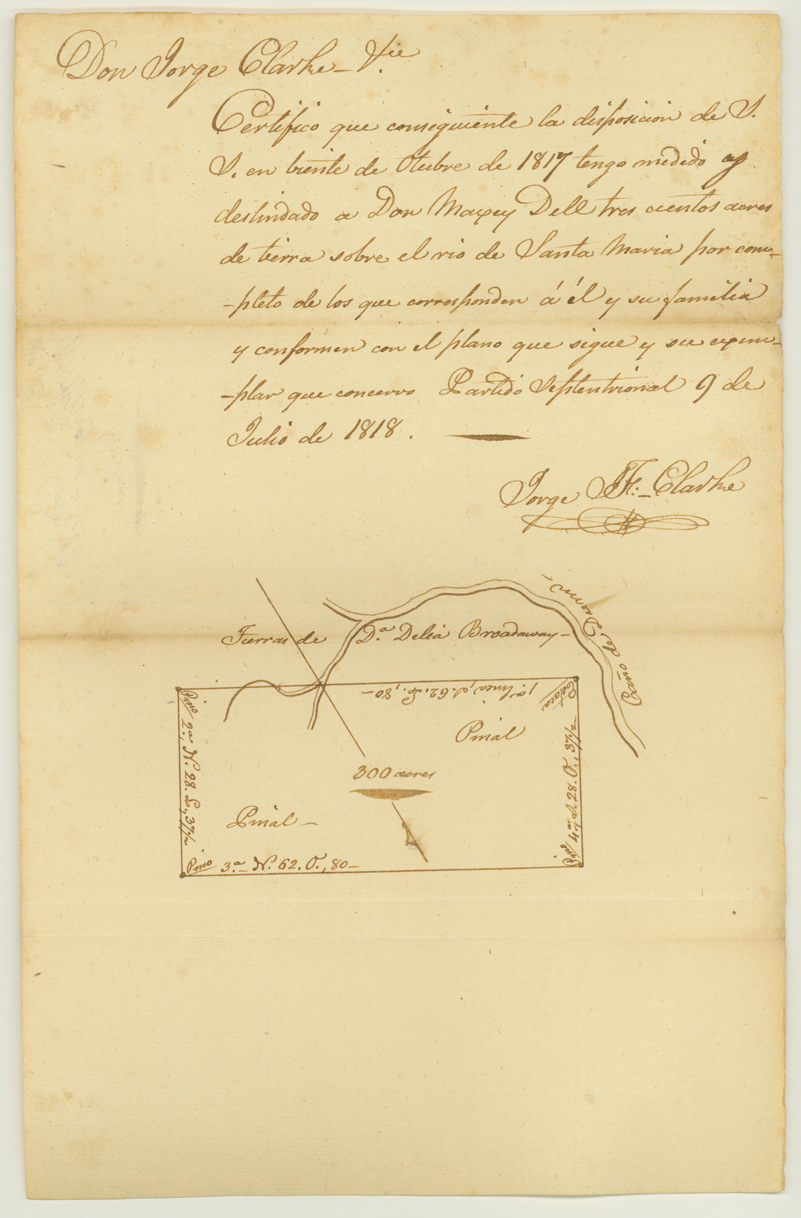 Don Jorge Clarke –
Certifico que consiguiente la disposicion de S.
S. en biente de Otubre de 1817 tengo medido y
deslindado a Don Maxey Dell tres cientos acres
de tierra sobre el rio de Santa Maria por com-
-pleto de los que corresponden á él y su familia
y conformen con el plano que sigue y su exem-
-plar que concervo Partido Septentrional 9 de
Julio de 1818.
Jorge J. F. Clarke
Caño de
Tierras de Dª Delia Broadaway –
1ª linea, S. 62. L., 80 –
Pino
2ª N. 28. L., 37½
Pinal
300 acres
Pinal –
4ª S. 28. O., 37½
Pino
Pino
3ª N. 62. O., 80 –